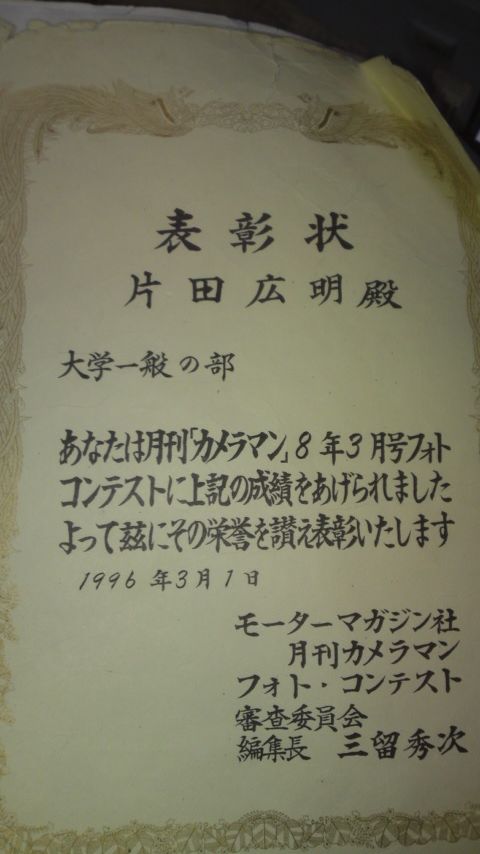 表彰状
片田広明殿
大学一般の部
あなたは月刊「カメラマン」8年3月号フォト
コンテストに上記の成績をあげられました
よって茲にその栄誉を讃え表彰いたします
1996年3月1日
モーターマガジン社
月刊カメラマン
フォト・コンテスト
審査委員会
編集長 三留秀次